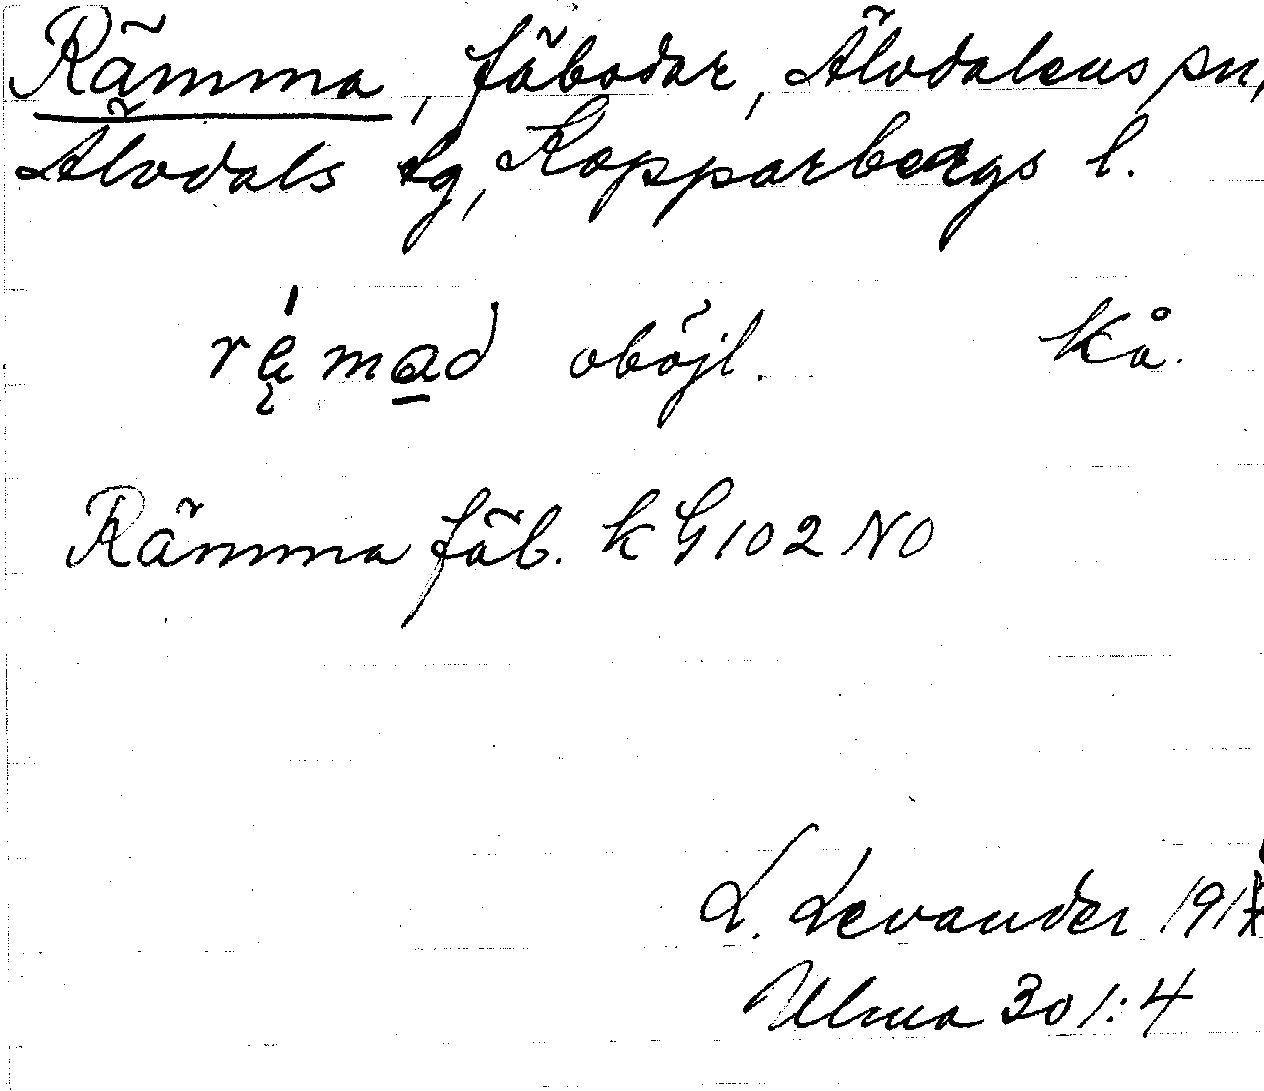 Rämma, fäbodar, Älvdalens sn,
Älvdals tg, Kopparbergs l.
rę́mad oböjl. Kå.
Rämma fäb. k G 102 NO
L. Levander
Ulma 301:4